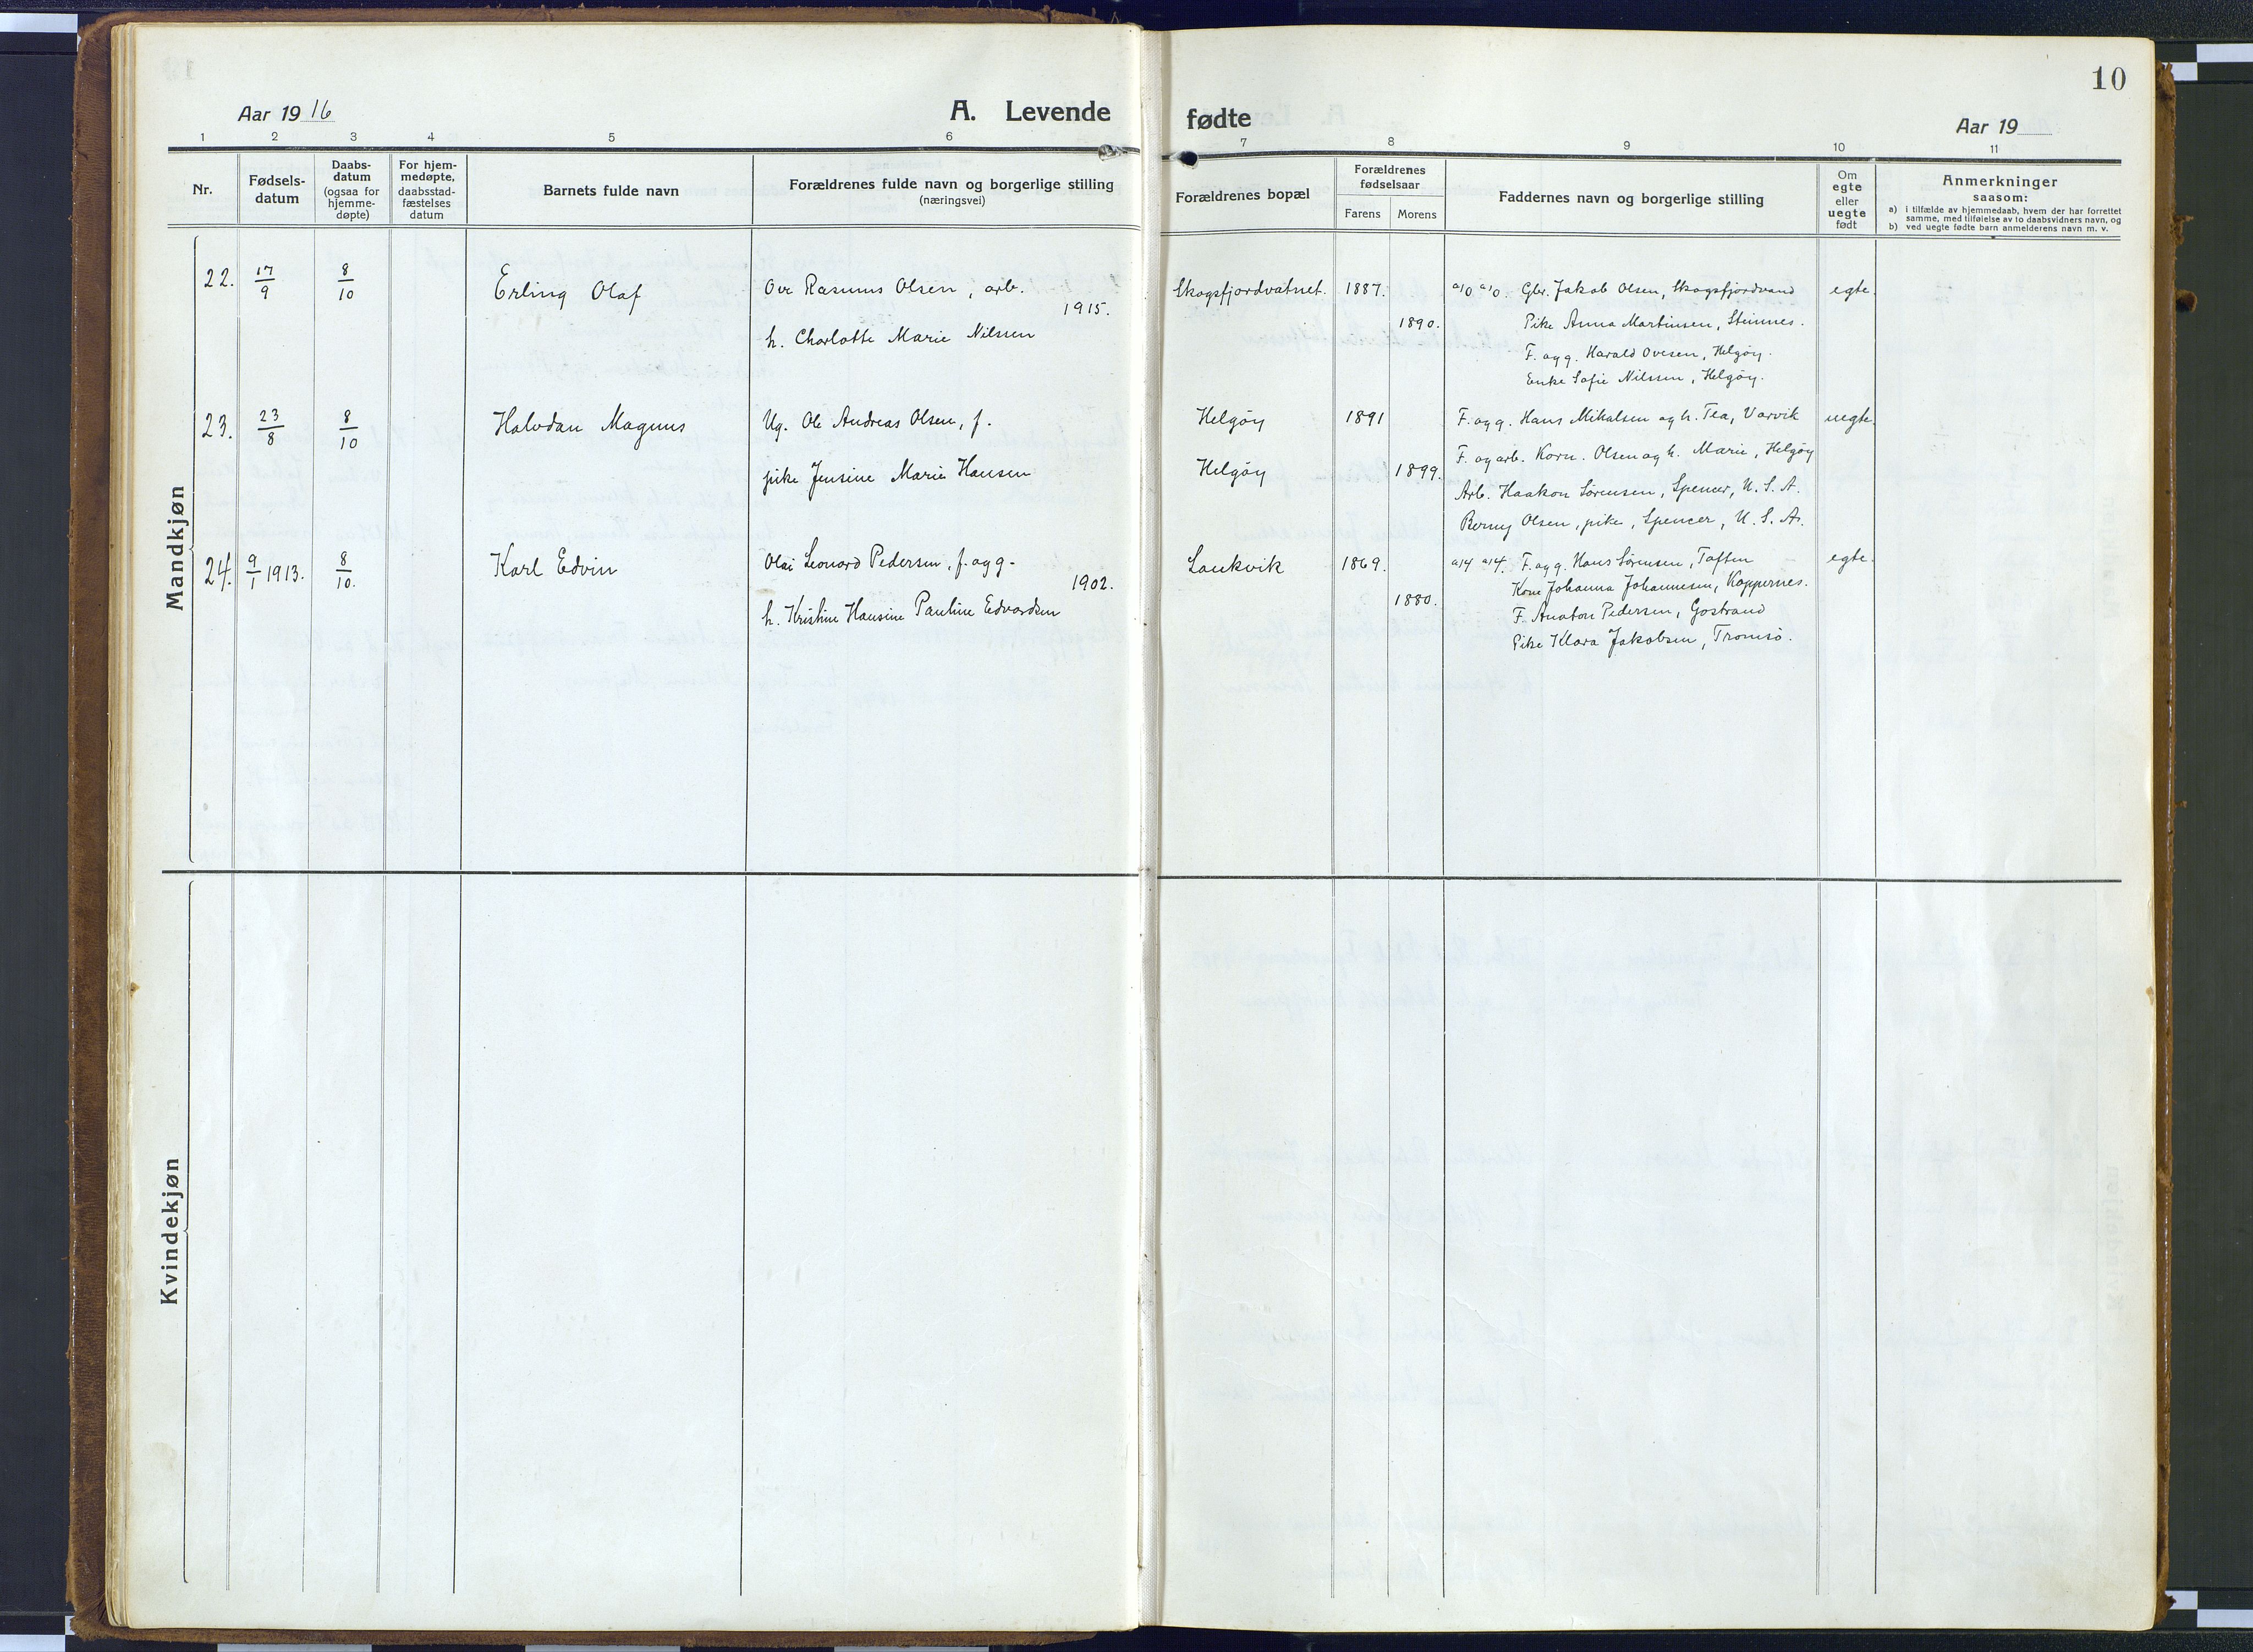 10
Aar 19 16
A. Levende
fødte
Aar 19
1 2 3 4 5 6 7 8 9 10 11
Nr.
Fødsels-
datum
Daabs-
datum
(ogsaa for
hjemme-
døpte)
For hjem-
medøpte,
daabsstad-
fæstelses
datum
Barnets fulde navn
Forældrenes fulde navn og borgerlige stilling
(næringsvei)
Forældrenes bopæl
Forældrenes
fødselsaar
Farens Morens
Faddernes navn og borgerlige stilling
Om
egte
eller
uegte
født
Anmerkninger
saasom:
a) i tilfælde av hjemmedaab, hvem der har forrettet
samme, med tilføielse av to daabsvidners navn, og
b) ved uegte fødte barn anmelderens navn m. v.
Mandkjøn
22. 17/9 8/10 Erling Olaf Ove Rasmus Olsen, arb. Skogsfjordvatnet. 1887. Gbr. Jakob Olsen, Skogsfjordvand egte.
1915.
h. Charlotte Marie Nilssen 1890. Pike Anna Martinsen, Stinnes.
F. og g. Harald Ovesen, Helgøy.
Enke Sofie Nilssen, Helgøy.
23. 23/8 8/10 Halvdan Magnus Ug. Ole Andreas Olsen, f. Helgøy 1891 F. og g. Hans Mikalsen og h. Tea, Varvik uegte.
F. og arb. Korn. Olsen og h. Marie, Helgøy
pike Jensine Marie Hansen Helgøy 1899. Arb. Haakon Sørensen, Spencer, U. S. A.
Berny Olsen, pike, Spencer, U. S. A.
24. 9/1 1913. 8/10. Karl Edvin Olai Leonard Pedersen, f. og g. Sankvik 1869. a14 a14. F. og g. Hans Sørensen, Toften egte.
1902. Kone Johanna Johannesen, Koppernes.
h. Kristine Hansine Pauline Edvardsen 1880. F. Anaton Pedersen, Gostrand
Pike Klara Jakobsen, Tromsø.
Kvindekjøn